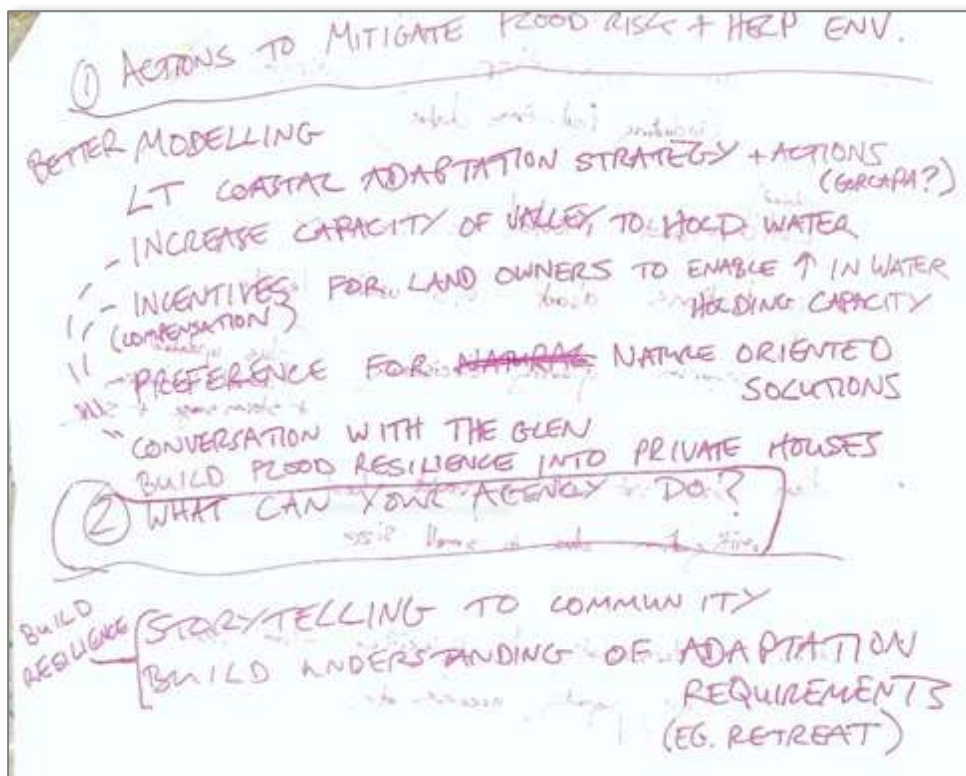 ① ACTIONS TO MITIGATE FLOOD RISK + HELP ENV.
BETTER MODELLING
LT COASTAL ADAPTATION STRATEGY + ACTIONS
(GORCAPA?)
- INCREASE CAPACITY OF VALLEY, TO HOLD WATER
- INCENTIVES FOR LAND OWNERS TO ENABLE ↑ IN WATER
(COMPENSATION) HOLDING CAPACITY
- PREFERENCE FOR NATURAL NATURE ORIENTED
SOLUTIONS
" CONVERSATION WITH THE GLEN
BUILD FLOOD RESILIENCE INTO PRIVATE HOUSES
② WHAT CAN YOUR AGENCY DO?
BUILD
RESILIENCE
STORYTELLING TO COMMUNITY
BUILD UNDERSTANDING OF ADAPTATION
REQUIREMENTS
(EG. RETREAT)